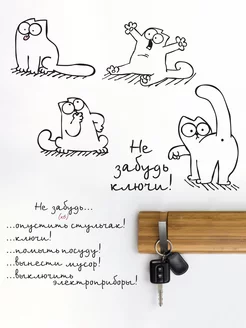 Не
забудь
ключи!
Не забудь...
(ка)
...опустить стульчак!
...ключи!
...помыть посуду!
...вынести мусор!
...выключить
электроприборы!